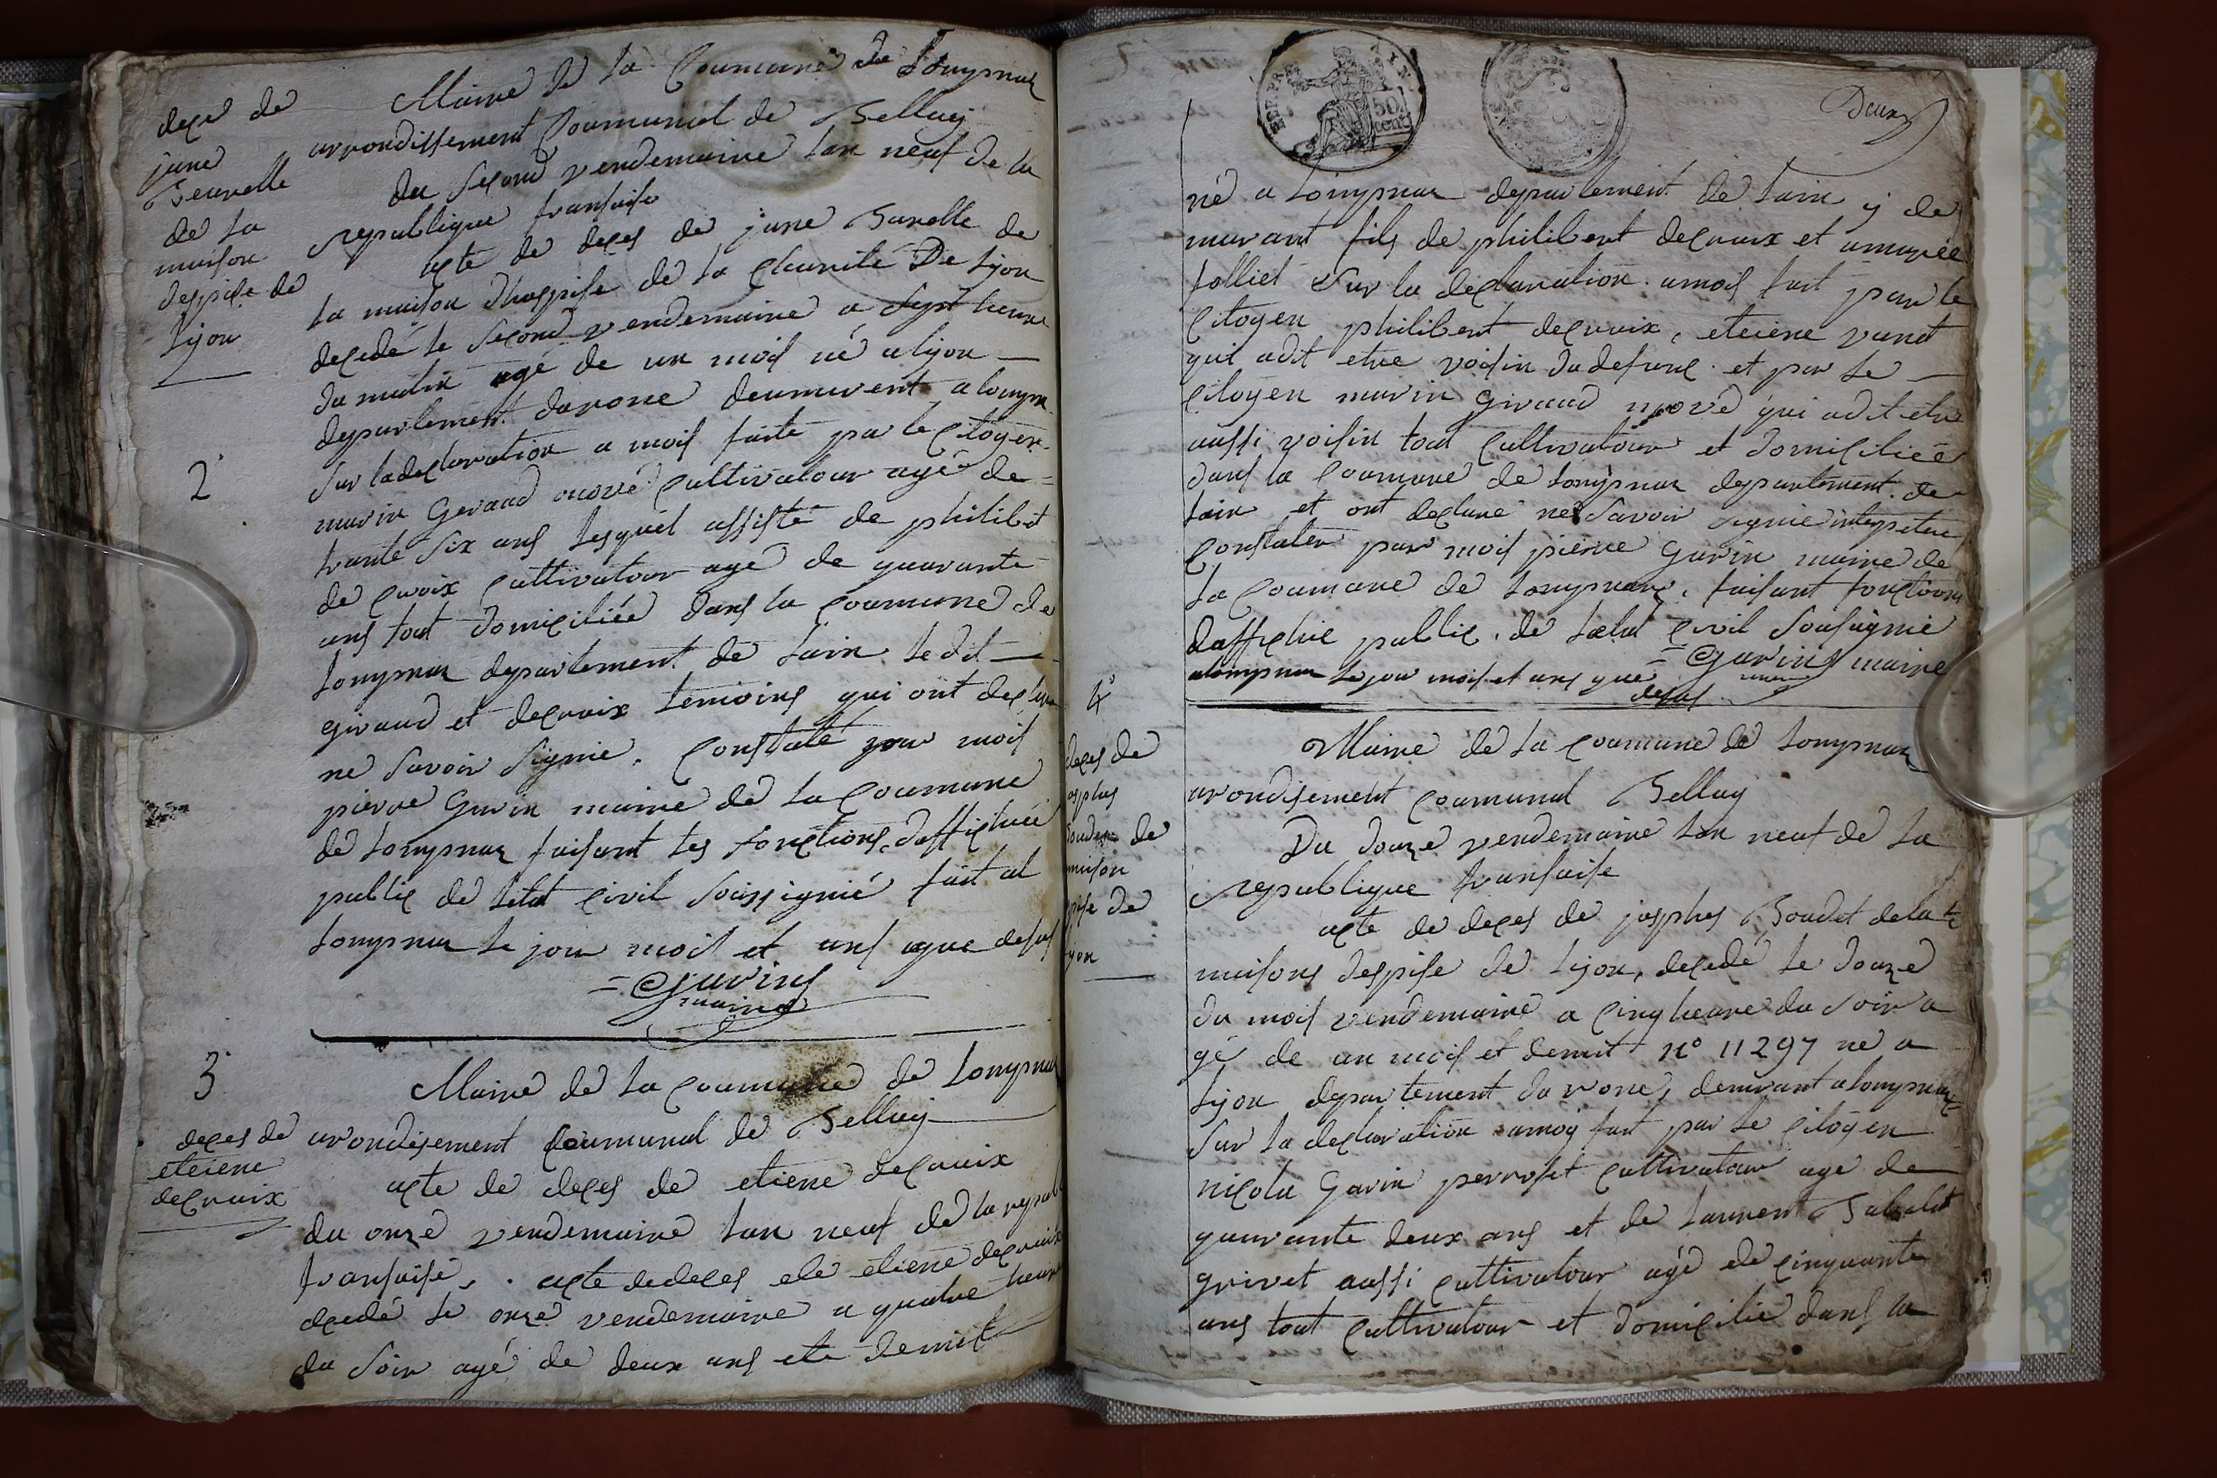 deces de
june
Seurelle
de la
maison
despise de
Lijon
Maire de la Coumune de Lompnas
arrondissement Coumunal de Belley
du second vendemaire lan neuf de la
republique fransaise
acte de deces de june Surelle de
la maison dhospise de la charité De Lijon
decedé le second vendemaire a sept heure
du matin agé de un mois né a lijon
departement du rone deumurent a lompn
2
sur la declaration a mois faite par le Citoyen
marin Geraud morvé cultivatour agé de
trante six ans lesquel assisté de philibert
de croix cultivatour agé de quarante
ans tout domiciliée dans la Coumune de
Lompnas departement de lain ledit
giraud et decroix temoins qui ont declare
ne savoir signie. Constaté par mois
pierre Gavin maire de la Coumune
de Lompnas faisant les fonctions daffichiée
public de letat civil soussignié fait at
Lompnas le jour mois et ans que desus
= Gavin =
maire
3
deces de
eteiene
decroix
Maire de la Coumune de Lompnas
arondisement Coumunal de Belley
acte de deces de etiene decroix
du onze vendemaire lan neuf de la republ
fransaise. acte de deces de etiene decroix
decedé le onze vendemaire a quatre heure
du soir agé de deux ans et demit
Deux
EDIPRE
50
cent
né a Lompnas departement de lain y de
murant fils de philibert decroix et amurée
tolliet sur la declaration a mois fait par le
Citoyen philibert decroix, eteiene vanot
qui adit etre voisin du defunt et par le
Citoyen marin Giraud morvé qui adit etre
aussi voisin tout cultivatour et domiciliée
dans la Coumune de Lompnas departement de
lain et ont declaré ne savoir signie interpeller
Constater par mois pierre Gavin maire de
la Coumune de Lompnas, faisant fonctions
daffichie public de letat civil sousignie
alompnas le jour mois et ans que = Gavin maire
desus
4
deces de
josphes
Boudet de
maison
pise de
Lyon
Maire de la Coumune de Lompnas
arondisement Coumunal Belley
Du douze vendemaire lan neuf de la
republique fransaise
acte de deces de josphes Boudot de la
maisons despise de Lijon, decedé le douze
du mois vendemaire a cinq heure du soir a
gé de un mois et demit N° 11297 né a
Lijon departement du rone, demurant a lompnas
sur la declaration a moy fait par le Citoyen
nicola Gavin perroset cultivatour agé de
quarante deux ans et de laurent Sabalot
grivet aussi cultivatour agé de cinquante
ans tout cultivatour et domicilie dans la